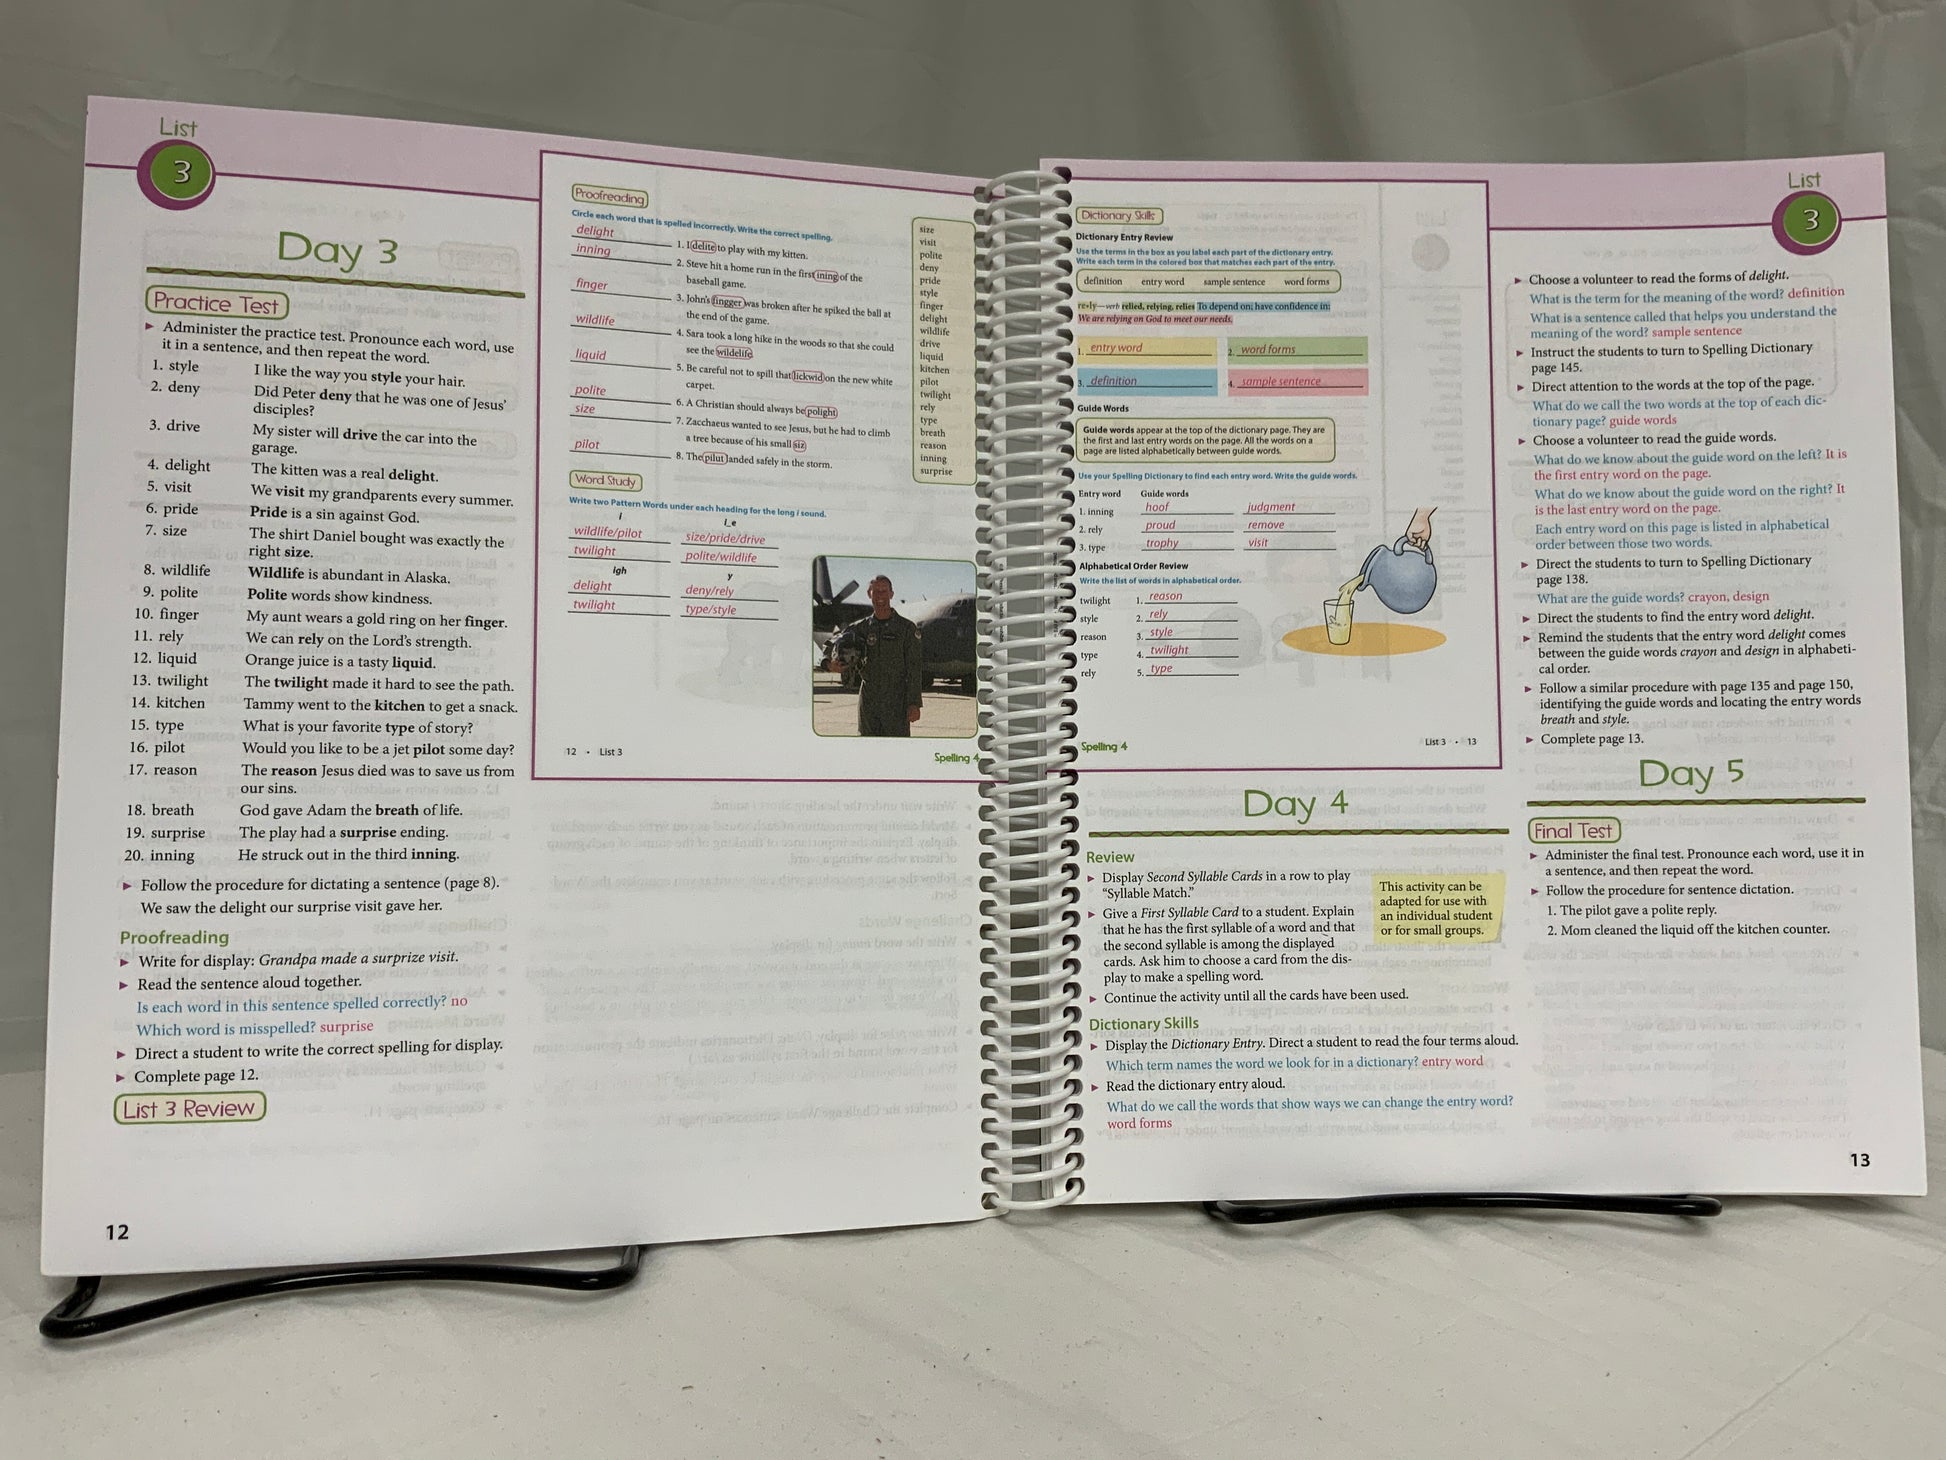 List
3
Day 3
Practice Test
► Administer the practice test. Pronounce each word, use
it in a sentence, and then repeat the word.
1. style I like the way you style your hair.
2. deny Did Peter deny that he was one of Jesus'
disciples?
3. drive My sister will drive the car into the
garage.
4. delight The kitten was a real delight.
5. visit We visit my grandparents every summer.
6. pride Pride is a sin against God.
7. size The shirt Daniel bought was exactly the
right size.
8. wildlife Wildlife is abundant in Alaska.
9. polite Polite words show kindness.
10. finger My aunt wears a gold ring on her finger.
11. rely We can rely on the Lord's strength.
12. liquid Orange juice is a tasty liquid.
13. twilight The twilight made it hard to see the path.
14. kitchen Tammy went to the kitchen to get a snack.
15. type What is your favorite type of story?
16. pilot Would you like to be a jet pilot some day?
17. reason The reason Jesus died was to save us from
our sins.
18. breath God gave Adam the breath of life.
19. surprise The play had a surprise ending.
20. inning He struck out in the third inning.
► Follow the procedure for dictating a sentence (page 8).
We saw the delight our surprise visit gave her.
Proofreading
► Write for display: Grandpa made a surprize visit.
► Read the sentence aloud together.
Is each word in this sentence spelled correctly? no
Which word is misspelled? surprise
► Direct a student to write the correct spelling for display.
► Complete page 12.
List 3 Review
12
Proofreading
Circle each word that is spelled incorrectly. Write the correct spelling.
delight 1. I delite to play with my kitten.
inning 2. Steve hit a home run in the first ining of the
baseball game.
finger 3. John's fingger was broken after he spiked the ball at
the end of the game.
wildlife 4. Sara took a long hike in the woods so that she could
see the wildelife.
liquid 5. Be careful not to spill that lickwid on the new white
carpet.
polite 6. A Christian should always be polight
size 7. Zacchaeus wanted to see Jesus, but he had to climb
a tree because of his small siz
pilot 8. The pilut landed safely in the storm.
size
visit
polite
deny
pride
style
finger
delight
wildlife
drive
liquid
kitchen
pilot
twilight
rely
type
breath
reason
inning
surprise
Word Study
Write two Pattern Words under each heading for the long i sound.
i i_e
wildlife/pilot size/pride/drive
twilight polite/wildlife
igh y
delight deny/rely
twilight type/style
12 • List 3
Spelling 4
Dictionary Skills
Dictionary Entry Review
Use the terms in the box as you label each part of the dictionary entry.
Write each term in the colored box that matches each part of the entry.
definition entry word sample sentence word forms
re•ly—verb relied, relying, relies To depend on; have confidence in:
We are relying on God to meet our needs.
1. entry word 2. word forms
3. definition 4. sample sentence
Guide Words
Guide words appear at the top of the dictionary page. They are
the first and last entry words on the page. All the words on a
page are listed alphabetically between guide words.
Use your Spelling Dictionary to find each entry word. Write the guide words.
Entry word Guide words
1. inning hoof judgment
2. rely proud remove
3. type trophy visit
Alphabetical Order Review
Write the list of words in alphabetical order.
twilight 1. reason
style 2. rely
reason 3. style
type 4. twilight
rely 5. type
Spelling 4
List 3 • 13
Day 4
Review
► Display Second Syllable Cards in a row to play
"Syllable Match."
► Give a First Syllable Card to a student. Explain
that he has the first syllable of a word and that
the second syllable is among the displayed
cards. Ask him to choose a card from the dis-
play to make a spelling word.
► Continue the activity until all the cards have been used.
This activity can be
adapted for use with
an individual student
or for small groups.
Dictionary Skills
► Display the Dictionary Entry. Direct a student to read the four terms aloud.
Which term names the word we look for in a dictionary? entry word
► Read the dictionary entry aloud.
What do we call the words that show ways we can change the entry word?
word forms
List
3
► Choose a volunteer to read the forms of delight.
What is the term for the meaning of the word? definition
What is a sentence called that helps you understand the
meaning of the word? sample sentence
► Instruct the students to turn to Spelling Dictionary
page 145.
► Direct attention to the words at the top of the page.
What do we call the two words at the top of each dic-
tionary page? guide words
► Choose a volunteer to read the guide words.
What do we know about the guide word on the left? It is
the first entry word on the page.
What do we know about the guide word on the right? It
is the last entry word on the page.
Each entry word on this page is listed in alphabetical
order between those two words.
► Direct the students to turn to Spelling Dictionary
page 138.
What are the guide words? crayon, design
► Direct the students to find the entry word delight.
► Remind the students that the entry word delight comes
between the guide words crayon and design in alphabeti-
cal order.
► Follow a similar procedure with page 135 and page 150,
identifying the guide words and locating the entry words
breath and style.
► Complete page 13.
Day 5
Final Test
► Administer the final test. Pronounce each word, use it in
a sentence, and then repeat the word.
► Follow the procedure for sentence dictation.
1. The pilot gave a polite reply.
2. Mom cleaned the liquid off the kitchen counter.
13